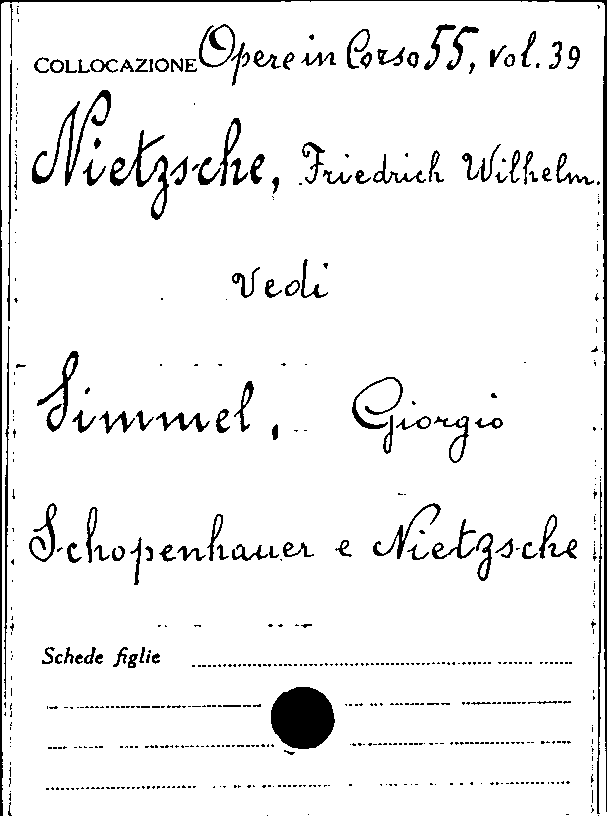 COLLOCAZIONE Opere in Corso 55, vol. 39
Nietzsche, Friedrich Wilhelm.
Vedi
Simmel, Giorgio
Schopenhauer e Nietzsche
Schede figlie